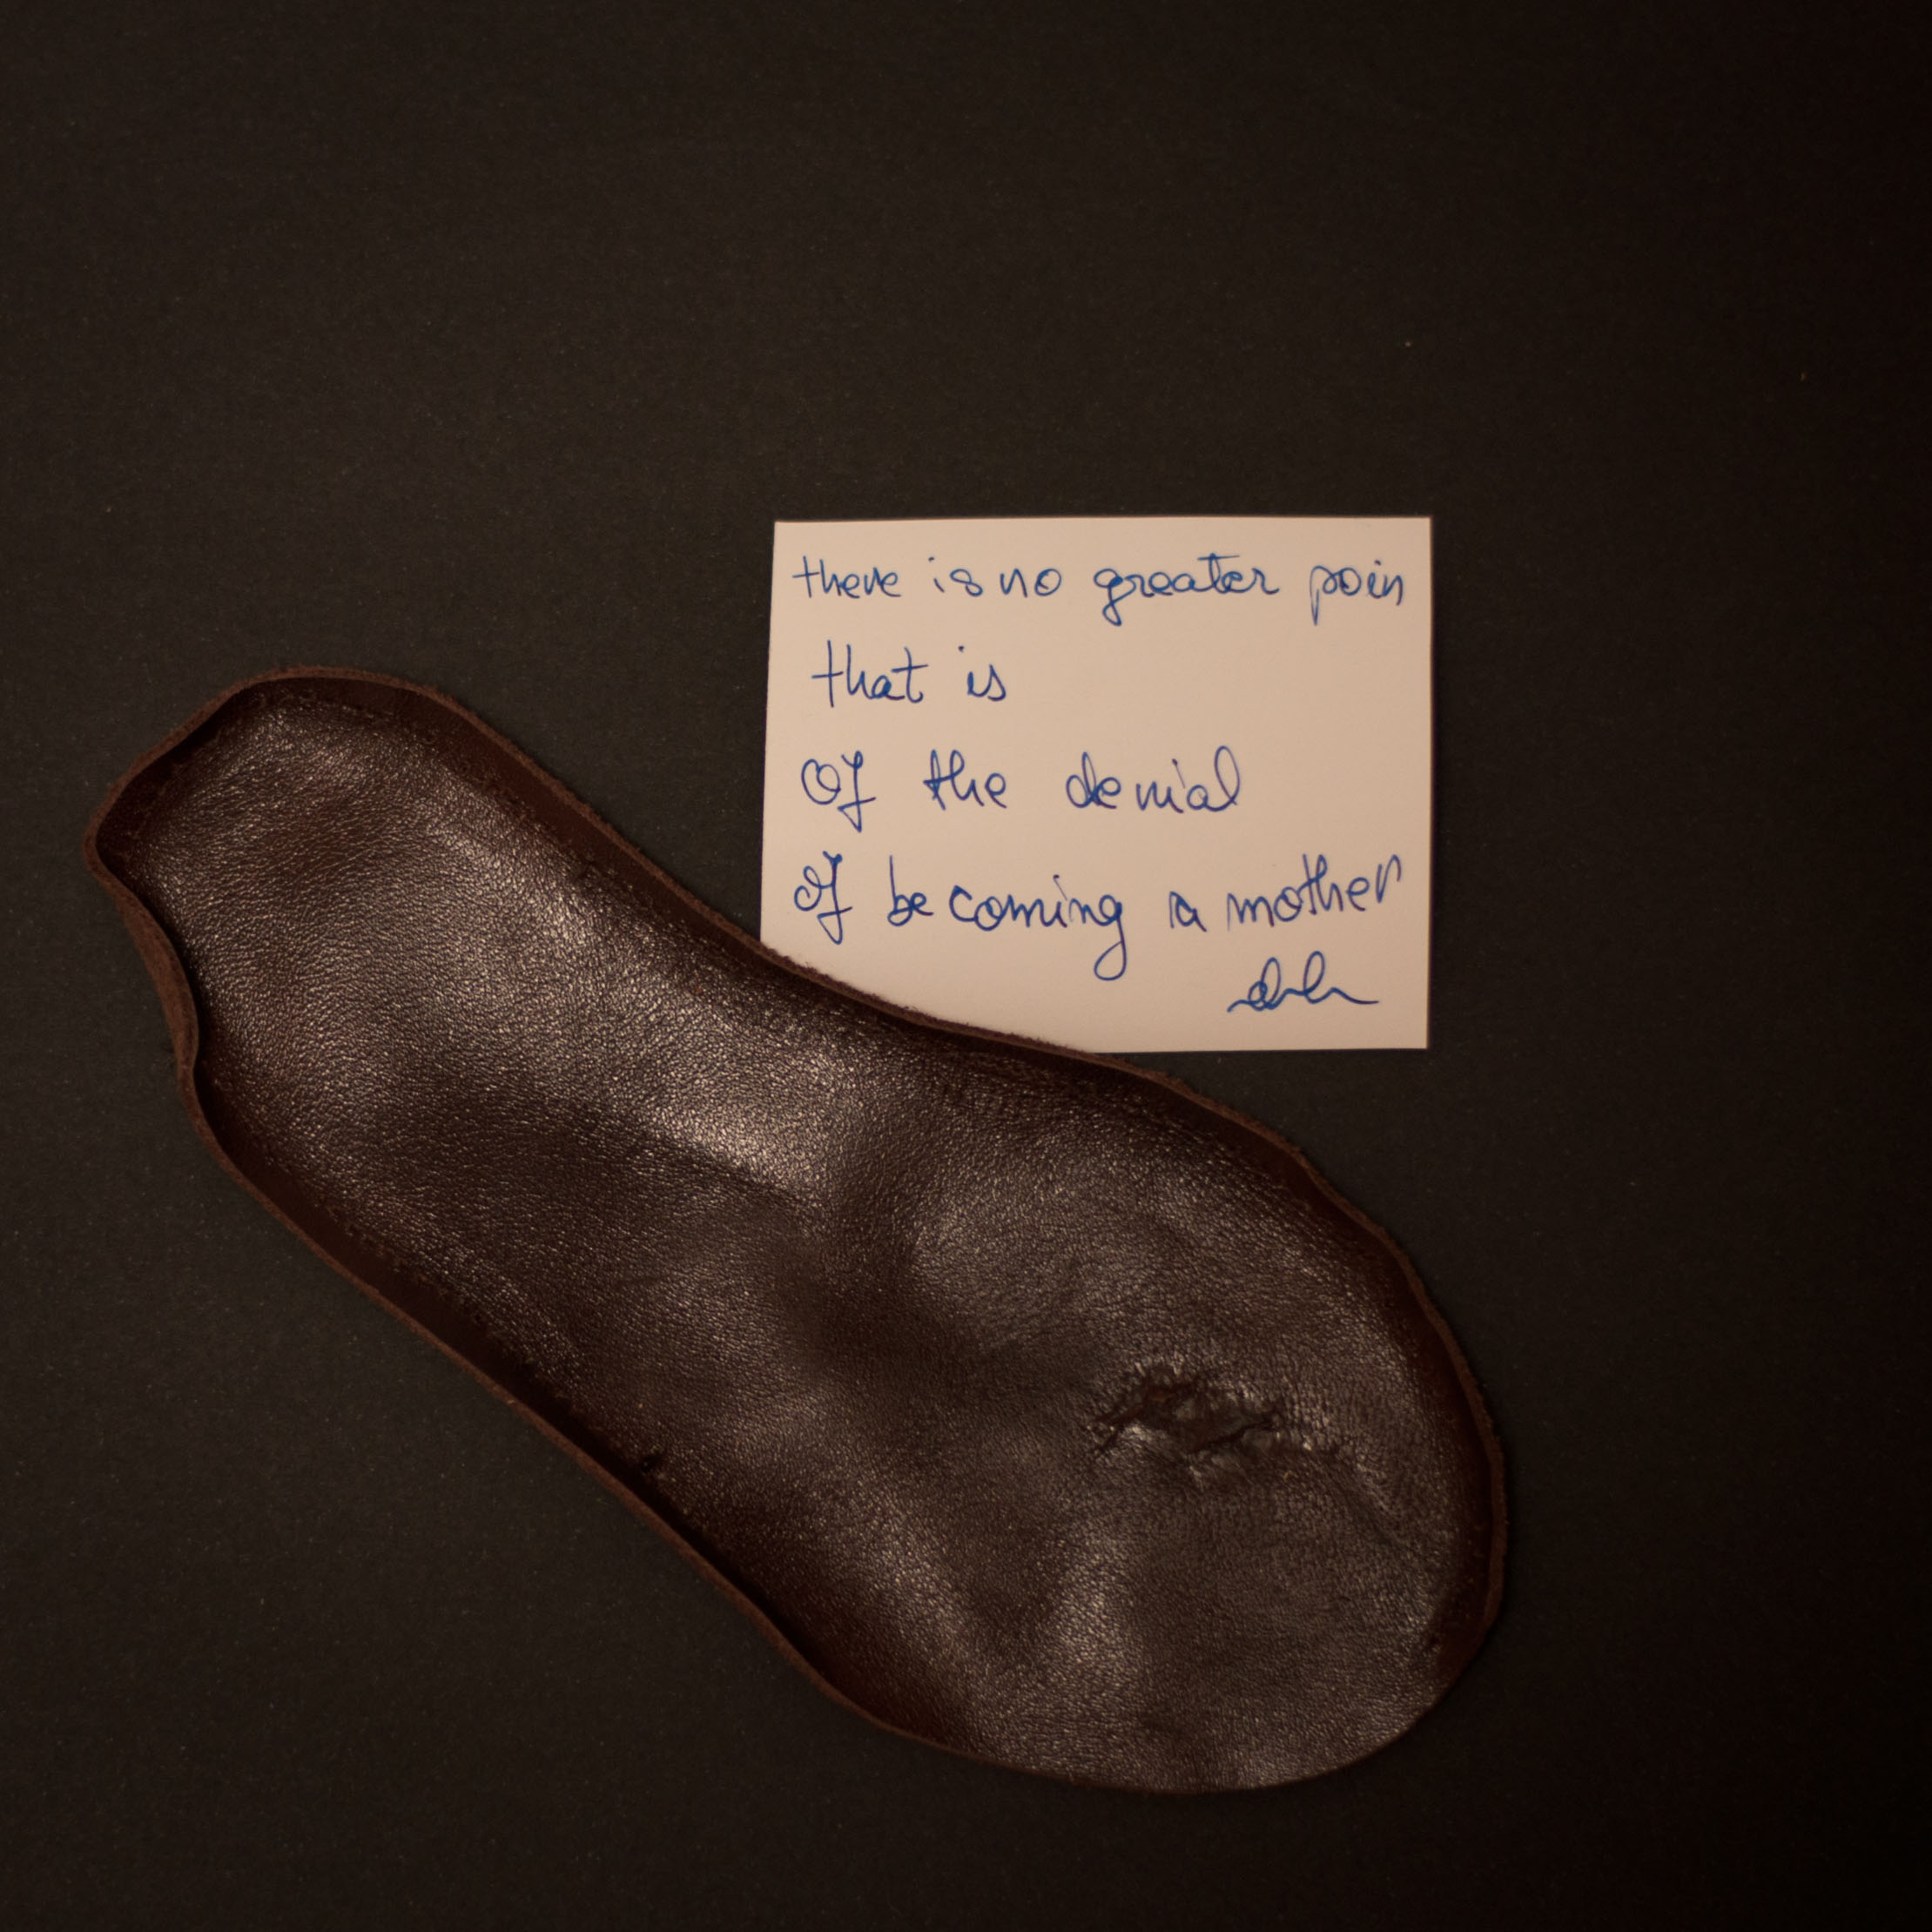 there is no greater pain
that is
Of the denial
Of becoming a mother